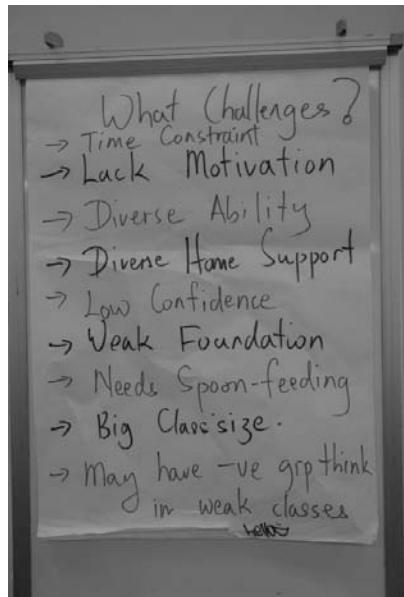 What Challenges?
→ Time Constraint
→ Lack Motivation
→ Diverse Ability
→ Diverse Home Support
→ Low Confidence
→ Weak Foundation
→ Needs Spoon-feeding
→ Big Class size.
→ May have -ve grp think
in weak classes
hello